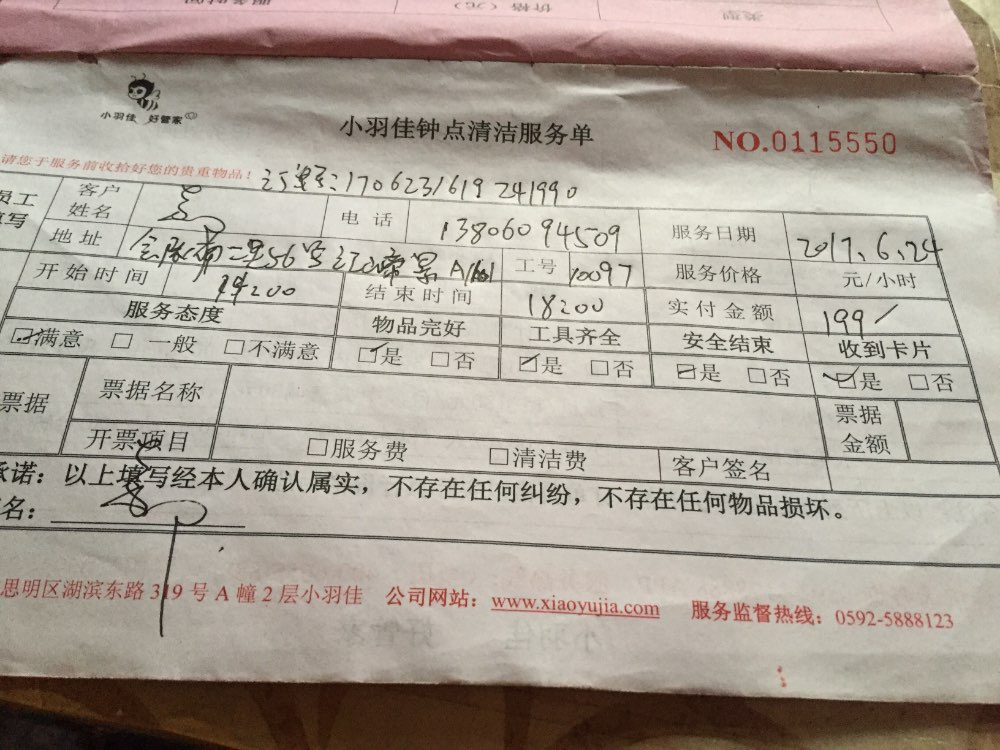 类型 价格（元） 服务时间
小羽佳 好管家
小羽佳钟点清洁服务单 NO.0115550
请您于服务前收拾好您的贵重物品！ 订单号:170623161924 1990
员工填写 客户姓名 电话 13806094509 服务日期 2017.6.24
地址 二里56号 A 工号 10097 服务价格 元/小时
开始时间 14:00 结束时间 18:00 实付金额 199
服务态度 物品完好 工具齐全 安全结束 收到卡片
☑满意 □一般 □不满意 ☑是 □否 ☑是 □否 ☑是 □否 ☑是 □否
票据 票据名称 票据金额
开票项目 □服务费 □清洁费 客户签名
承诺：以上填写经本人确认属实，不存在任何纠纷，不存在任何物品损坏。
名：
思明区湖滨东路319号A幢2层小羽佳 公司网站：www.xiaoyujia.com 服务监督热线：0592-5888123
小羽佳 好管家